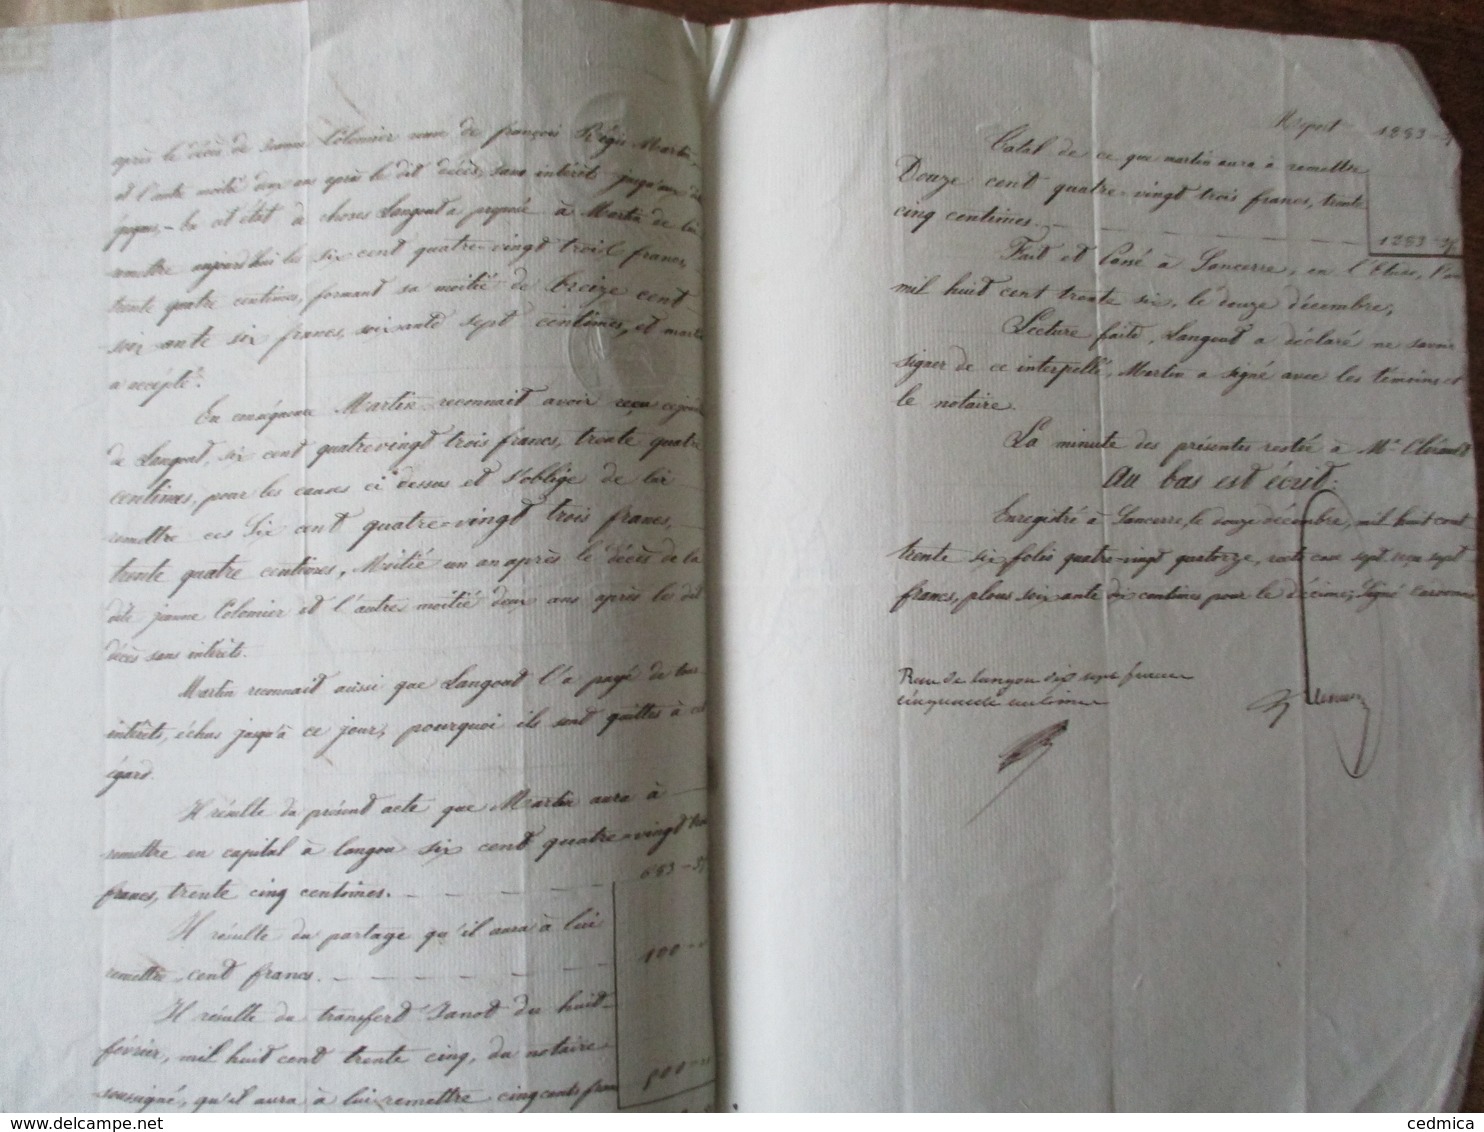 après le décès de jeanne Colomier veuve de françois Régis Martin
et l'autre moitié deux ans après le dit décès, sans intérêts jusqu'aux dits
jours, - En cet état de choses Langout a proposé à Martin de lui
remettre aujourd'hui les six cent quatre-vingt trois francs,
trente quatre centimes, formant sa moitié de treize cent
soixante six francs, soixante sept centimes, et martin
a accepté.
En conséquence Martin reconnait avoir reçu ce jour
de Langout, six cent quatrevingt trois francs, trente quatre
centimes, pour les causes ci dessus et s'oblige de lui
remettre ces Six cent quatre-vingt trois francs,
trente quatre centimes, Moitié un an après le décès de la
dite jeanne Colomier et l'autre moitié deux ans après le dit
décès sans intérêts.
Martin reconnait aussi que Langout l'a payé de tous
intérêts, échus jusqu'à ce jour, pourquoi ils sont quittes à cet
égard.
Il résulte du présent acte que Martin aura à
remettre en capital à Langou six cent quatre-vingt trois
francs, trente cinq centimes. 683-35
Il résulte du partage qu'il aura à lui
remettre cent francs. 100
Il résulte du transfert Janot du huit
février, mil huit cent trente cinq, du notaire
soussigné, qu'il aura à lui remettre cinq cents francs 500
Report 1283-35
Total de ce que martin aura à remettre
Douze cent quatre-vingt trois francs, trente
cinq centimes. 1283-35
Fait et Passé à Sancerre, en l'Etude, l'an
mil huit cent trente six, le douze décembre,
Lecture faite, Langout a déclaré ne savoir
signer de ce interpellé, Martin a signé avec les témoins et
le notaire.
La minute des présentes restée à Me Clérault
Au bas est écrit:
Enregistré à Sancerre, le douze décembre, mil huit cent
trente six folio quatre-vingt quatorze, recto case sept reçu sept
francs, plus soixante dix centimes pour le décime, Signé
Reçu de langou dix sept francs
cinquante centimes
cedmica